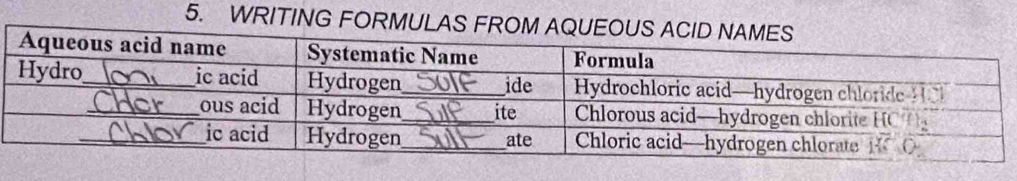 5. WRITING FORMULAS FROM AQUEOUS ACID NAMES
Aqueous acid name Systematic Name Formula
Hydro ioni ic acid Hydrogen SUlF ide Hydrochloric acid—hydrogen chloride HCl
Chlor ous acid Hydrogen Sulf ite Chlorous acid—hydrogen chlorite
Chlor ic acid Hydrogen Sulf ate Chloric acid—hydrogen chlorate